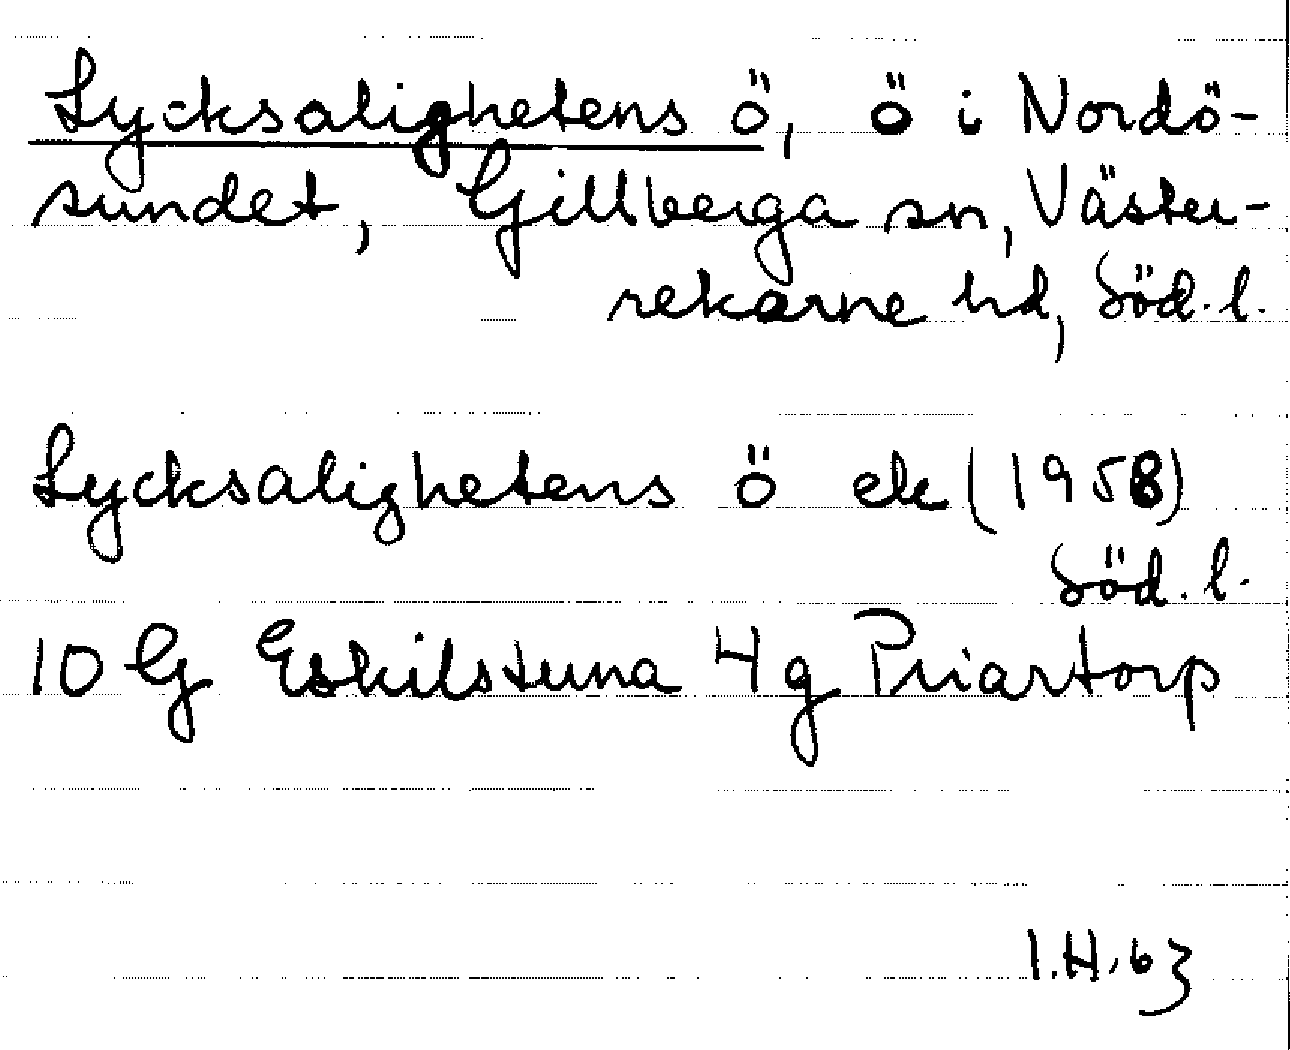 Lycksalighetens ö, ö i Nordö-
sundet, Gillberga sn, Väster-
rekarne hd, Söd. l.
Lycksalighetens ö ek (1958)
Söd. l.
10 G Eskilstuna 4 g Priartorp
I.H. 63